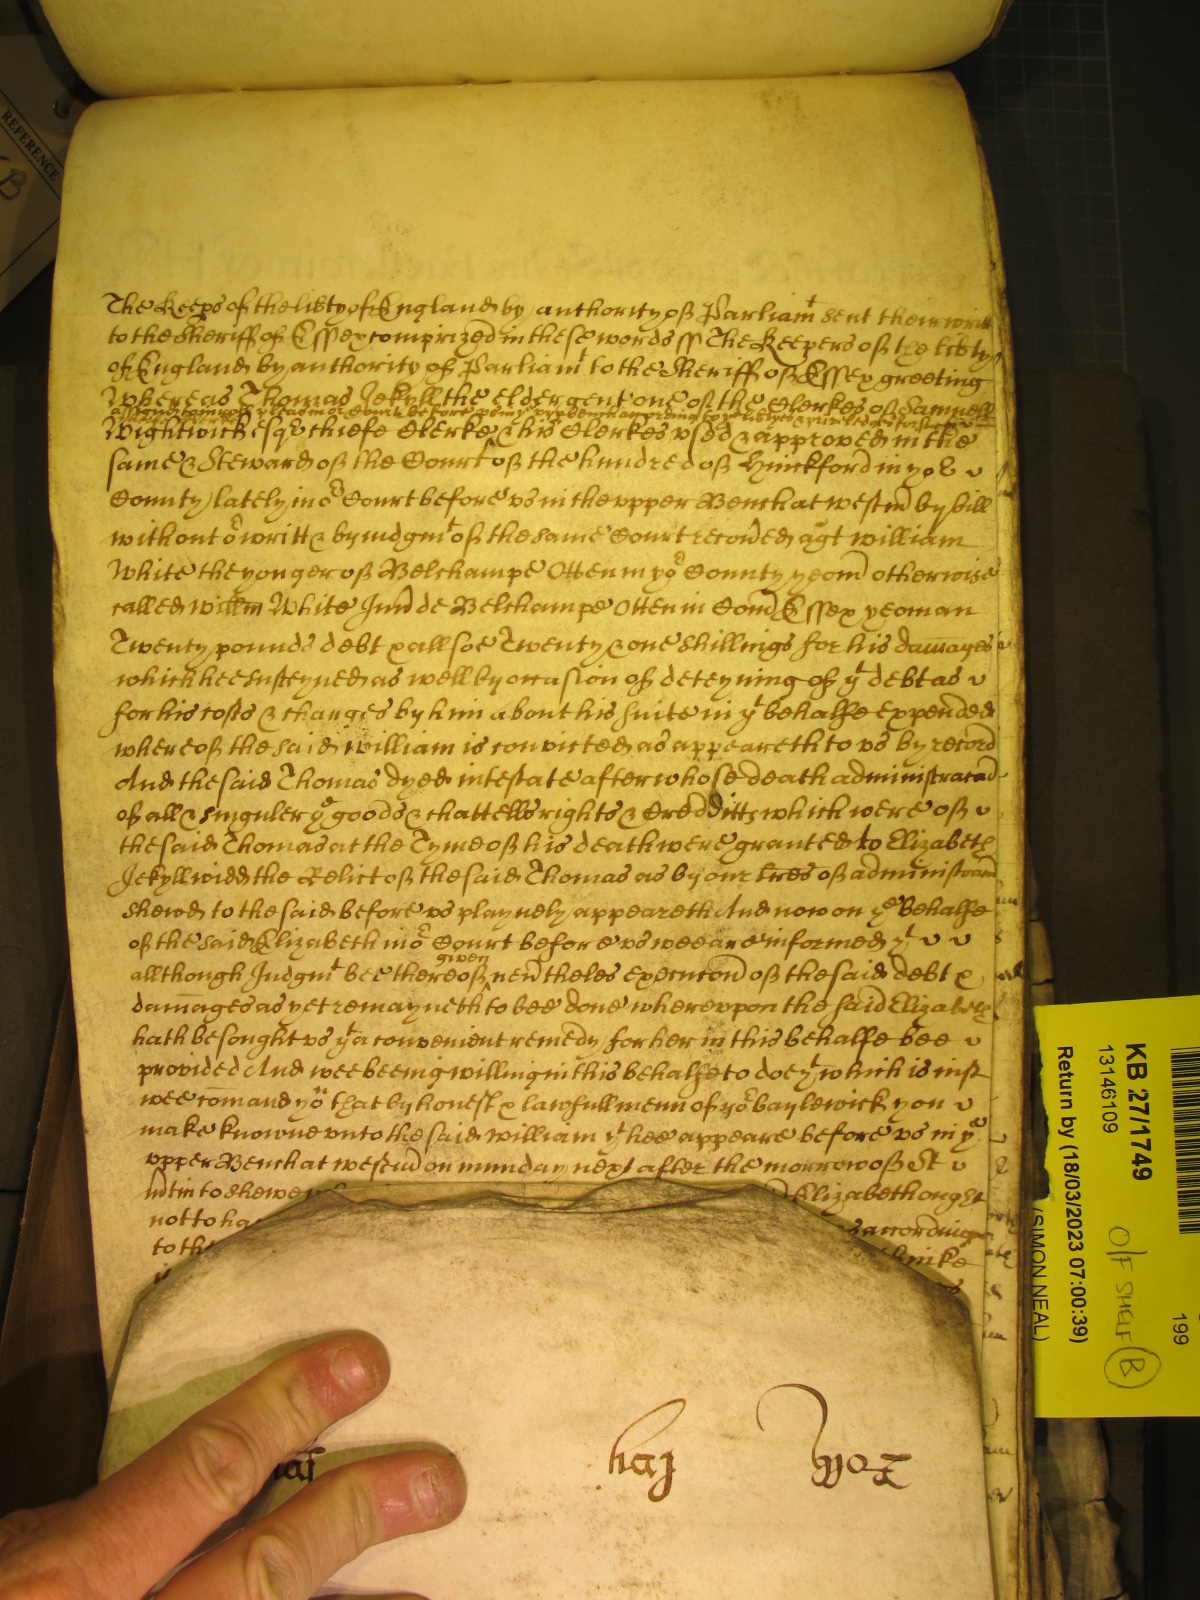 The Keeps of the libty of England by authority of Parliamt sent their writt
to the Sheriff of Essex comprized in these words ss The Keepers of the libty
of England by authority of Parliamt to the Sheriff of Essex greeting
Whereas Thomas Jekyll the elder gent one of the Clerkes of Samuell
Wightwick esqr chiefe Clerke & his Clerkes used & approved in the
same & Steward of the Court of the hundred of Hinckford in yor
County lately in or Court before us in the upper Bench at Westm by bill
without or writt & by iudgmt of the same Court recoved agt William
White the yonger of Belchampe Otten in yor County yeom otherwise
called Willm White Jun de Belchampe Otten in Com Essex yeoman
Twenty pounds debt & allsoe Twenty & one shillings for his damages
which hee susteyned as well by occasion of deteyning of yt debt as
for his costs & charges by him about his suite in yt behalfe expended
whereof the said William is convicted as appeareth to us by record
And the said Thomas dyed intestate after whose death administracon
of all & singuler ye goods & chattells rights & Credditts which were of
the said Thomas at the Tyme of his death were granted to Elizabeth
Jekyll widd the Relict of the said Thomas as by our tres of administracon
shewed to the said before us playnely appeareth And now on ye Behalfe
of the said Elizabeth in or Court before us wee are informed yt
allthough Judgmt bee thereof given nevtheles execucon of the said debt &
damages as yet remayneth to bee done whereupon the said Elizabeth
hath besought us yt a convenient remedy for her in this behalfe bee
provided And wee beeing willing in this behalfe to doe yt which is iust
wee comand you that by honest & lawfull menn of yor baylewick you
make knowne unto the said William yt hee appeare before us in ye
upper Bench at Westm on munday next after the morrow of St
Elizabeth ought
not to ha
according
to the
KB 27/1749
13146109
Return by (18/03/2023 07:00:39)
(SIMON NEAL)
199
O/F SHELF B
REFERENCE
B